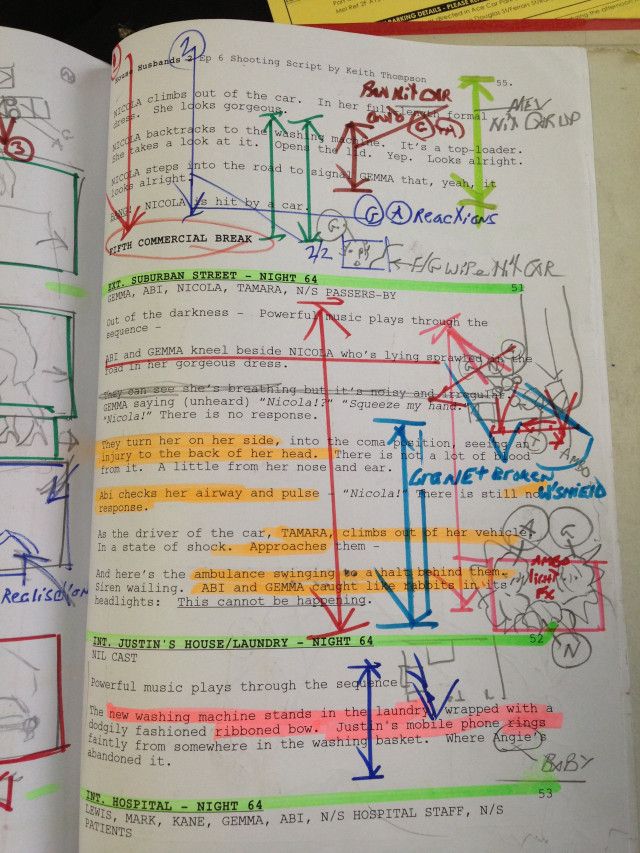 PARKING DETAILS - PLEASE
House Husbands 2 Ep 6 Shooting Script by Keith Thompson
55.
1
2
NICOLA climbs out of the car. In her full length formal
dress. She looks gorgeous.
PAN Nix CAR
onto
MEV
Nix CAR UP
NICOLA backtracks to the washing machine. It's a top-loader.
She takes a look at it. Opens the lid. Yep. Looks alright.
NICOLA steps into the road to signal GEMMA that, yeah, it
looks alright.
BANG! NICOLA is hit by a car.
G A Reactions
FIFTH COMMERCIAL BREAK
2/2
F/G WIPE Nix CAR
EXT. SUBURBAN STREET - NIGHT 64
51
GEMMA, ABI, NICOLA, TAMARA, N/S PASSERS-BY
Out of the darkness - Powerful music plays through the
sequence -
ABI and GEMMA kneel beside NICOLA who's lying sprawled in the
road in her gorgeous dress.
They can see she's breathing but it's noisy and irregular.
GEMMA saying (unheard) "Nicola!?" "Squeeze my hand."
"Nicola!" There is no response.
They turn her on her side, into the coma position, seeing an
injury to the back of her head. There is not a lot of blood
from it. A little from her nose and ear.
AMBO
BROKEN
W'SHIELD
Abi checks her airway and pulse - "Nicola!" There is still no
response.
As the driver of the car, TAMARA, climbs out of her vehicle.
In a state of shock. Approaches them -
A G
And here's the ambulance swinging to a halt behind them.
Siren wailing. ABI and GEMMA caught like rabbits in its
headlights: This cannot be happening.
AMBO
light
FX
N
Realisation
INT. JUSTIN'S HOUSE/LAUNDRY - NIGHT 64
52
NIL CAST
Powerful music plays through the sequence
The new washing machine stands in the laundry, wrapped with a
dodgily fashioned ribboned bow. Justin's mobile phone rings
faintly from somewhere in the washing basket. Where Angie's
abandoned it.
BABY
INT. HOSPITAL - NIGHT 64
53
LEWIS, MARK, KANE, GEMMA, ABI, N/S HOSPITAL STAFF, N/S
PATIENTS